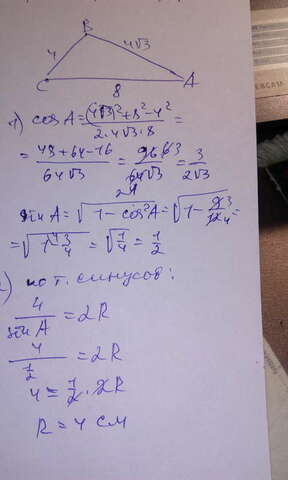 B
4
4√3
C
8
A
1) cos A = (4√3)² + 8² - 4² / 2 · 4√3 · 8 =
= 48 + 64 - 16 / 64√3 = 96 / 64√3 = 3 / 2√3
sin A = √1 - cos²A = √1 - 9 3 / 12 4 =
= √1 - 3/4 = √1/4 = 1/2
2) по т. синусов:
4 / sin A = 2R
4 / 1/2 = 2R
4 = 1/2 · 2R
R = 4 см